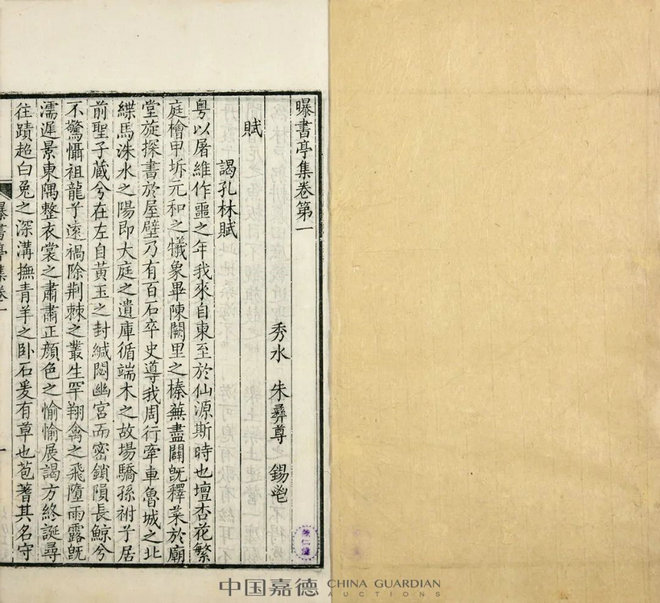 曝書亭集卷第一
秀水 朱彝尊 錫鬯
賦
謁孔林賦
粵以屠維作噩之年我來自東至於仙源斯時也壇杏花繁
庭檜甲坼元和之犧象畢陳闕里之榛蕪盡闢旣釋菜於廟
堂旋探書於屋壁乃有百石卒史導我周行牽車魯城之北
緤馬洙水之陽卽大庭之遺庫循端木之故場驕孫祔子居
前聖子蕆兮在左自黃玉之封緘閟幽宮而密鎖隕長鯨兮
不驚懾祖龍予遠禍除荆棘之叢生罕翔禽之飛墮雨露旣
濡遲景東隅整衣裳之肅肅正顏色之愉愉展謁方終誕尋
往蹟超白兔之深溝撫青羊之卧石爰有草也苞蓍其名守
曝書亭集卷一
一
中国嘉德 CHINA GUARDIAN
AUCTIONS